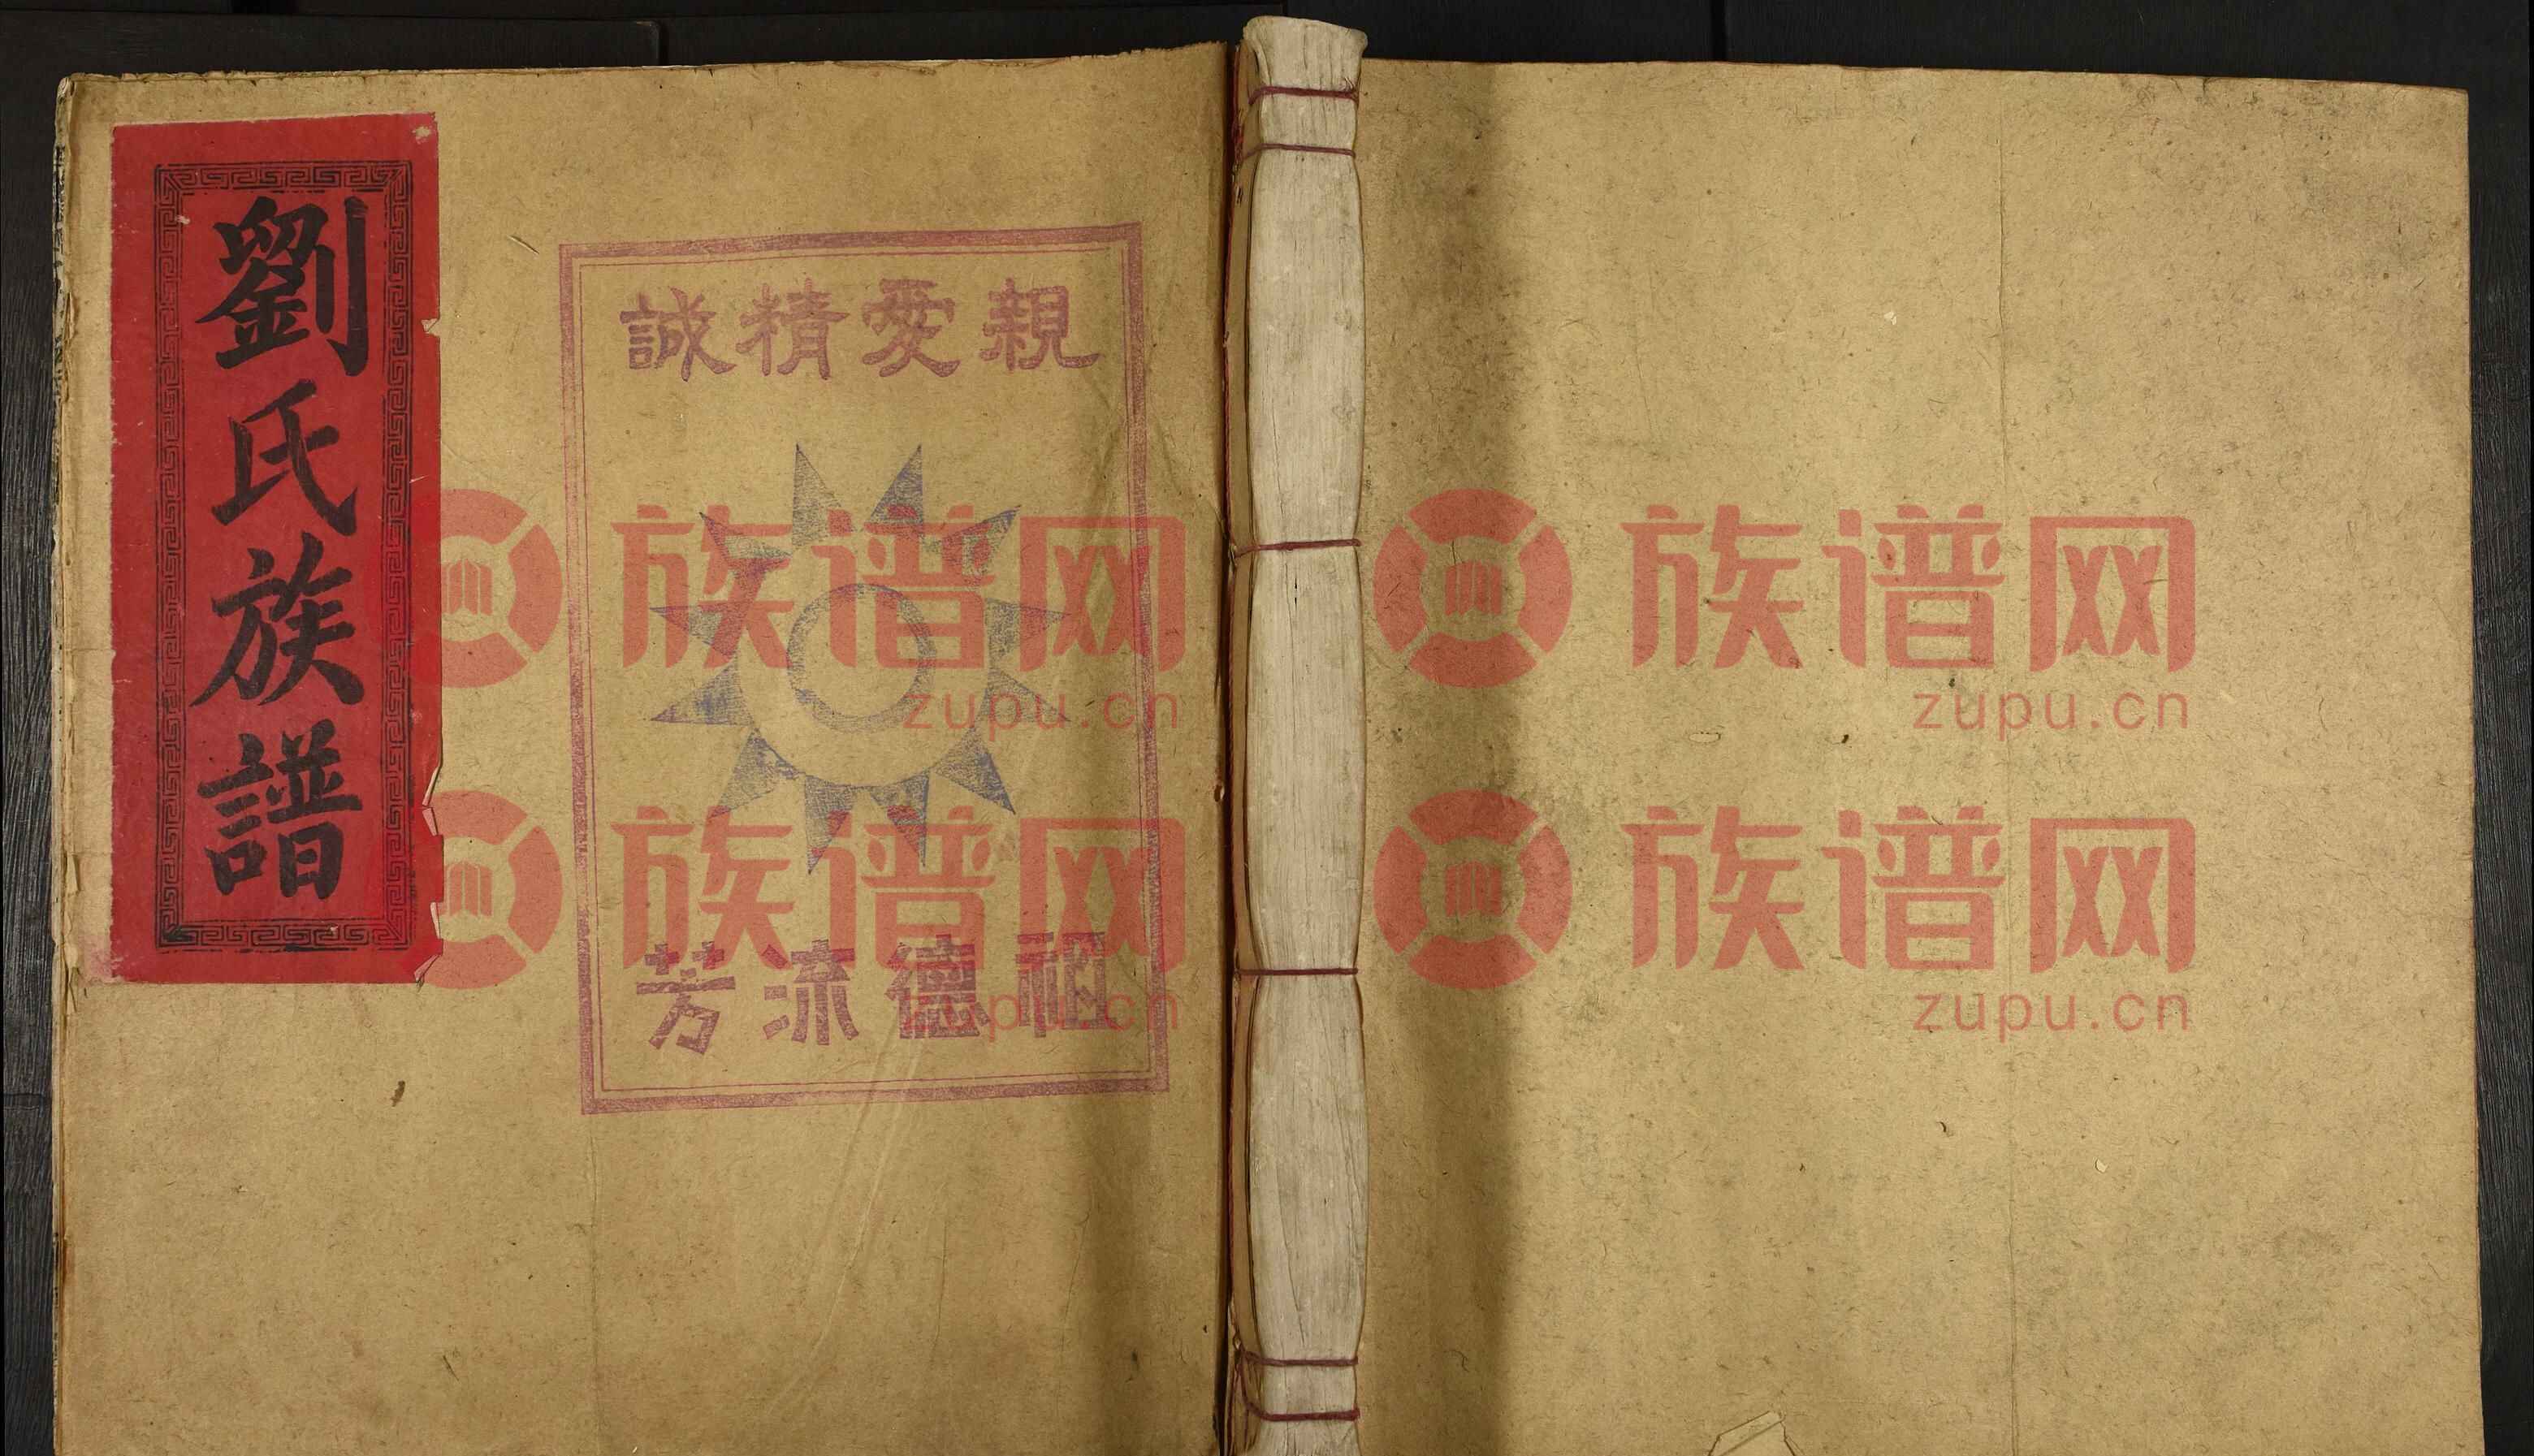 劉氏族譜
親愛精誠
祖德流芳
族谱网
zupu.cn
族谱网
zupu.cn
族谱网
zupu.cn
族谱网
zupu.cn